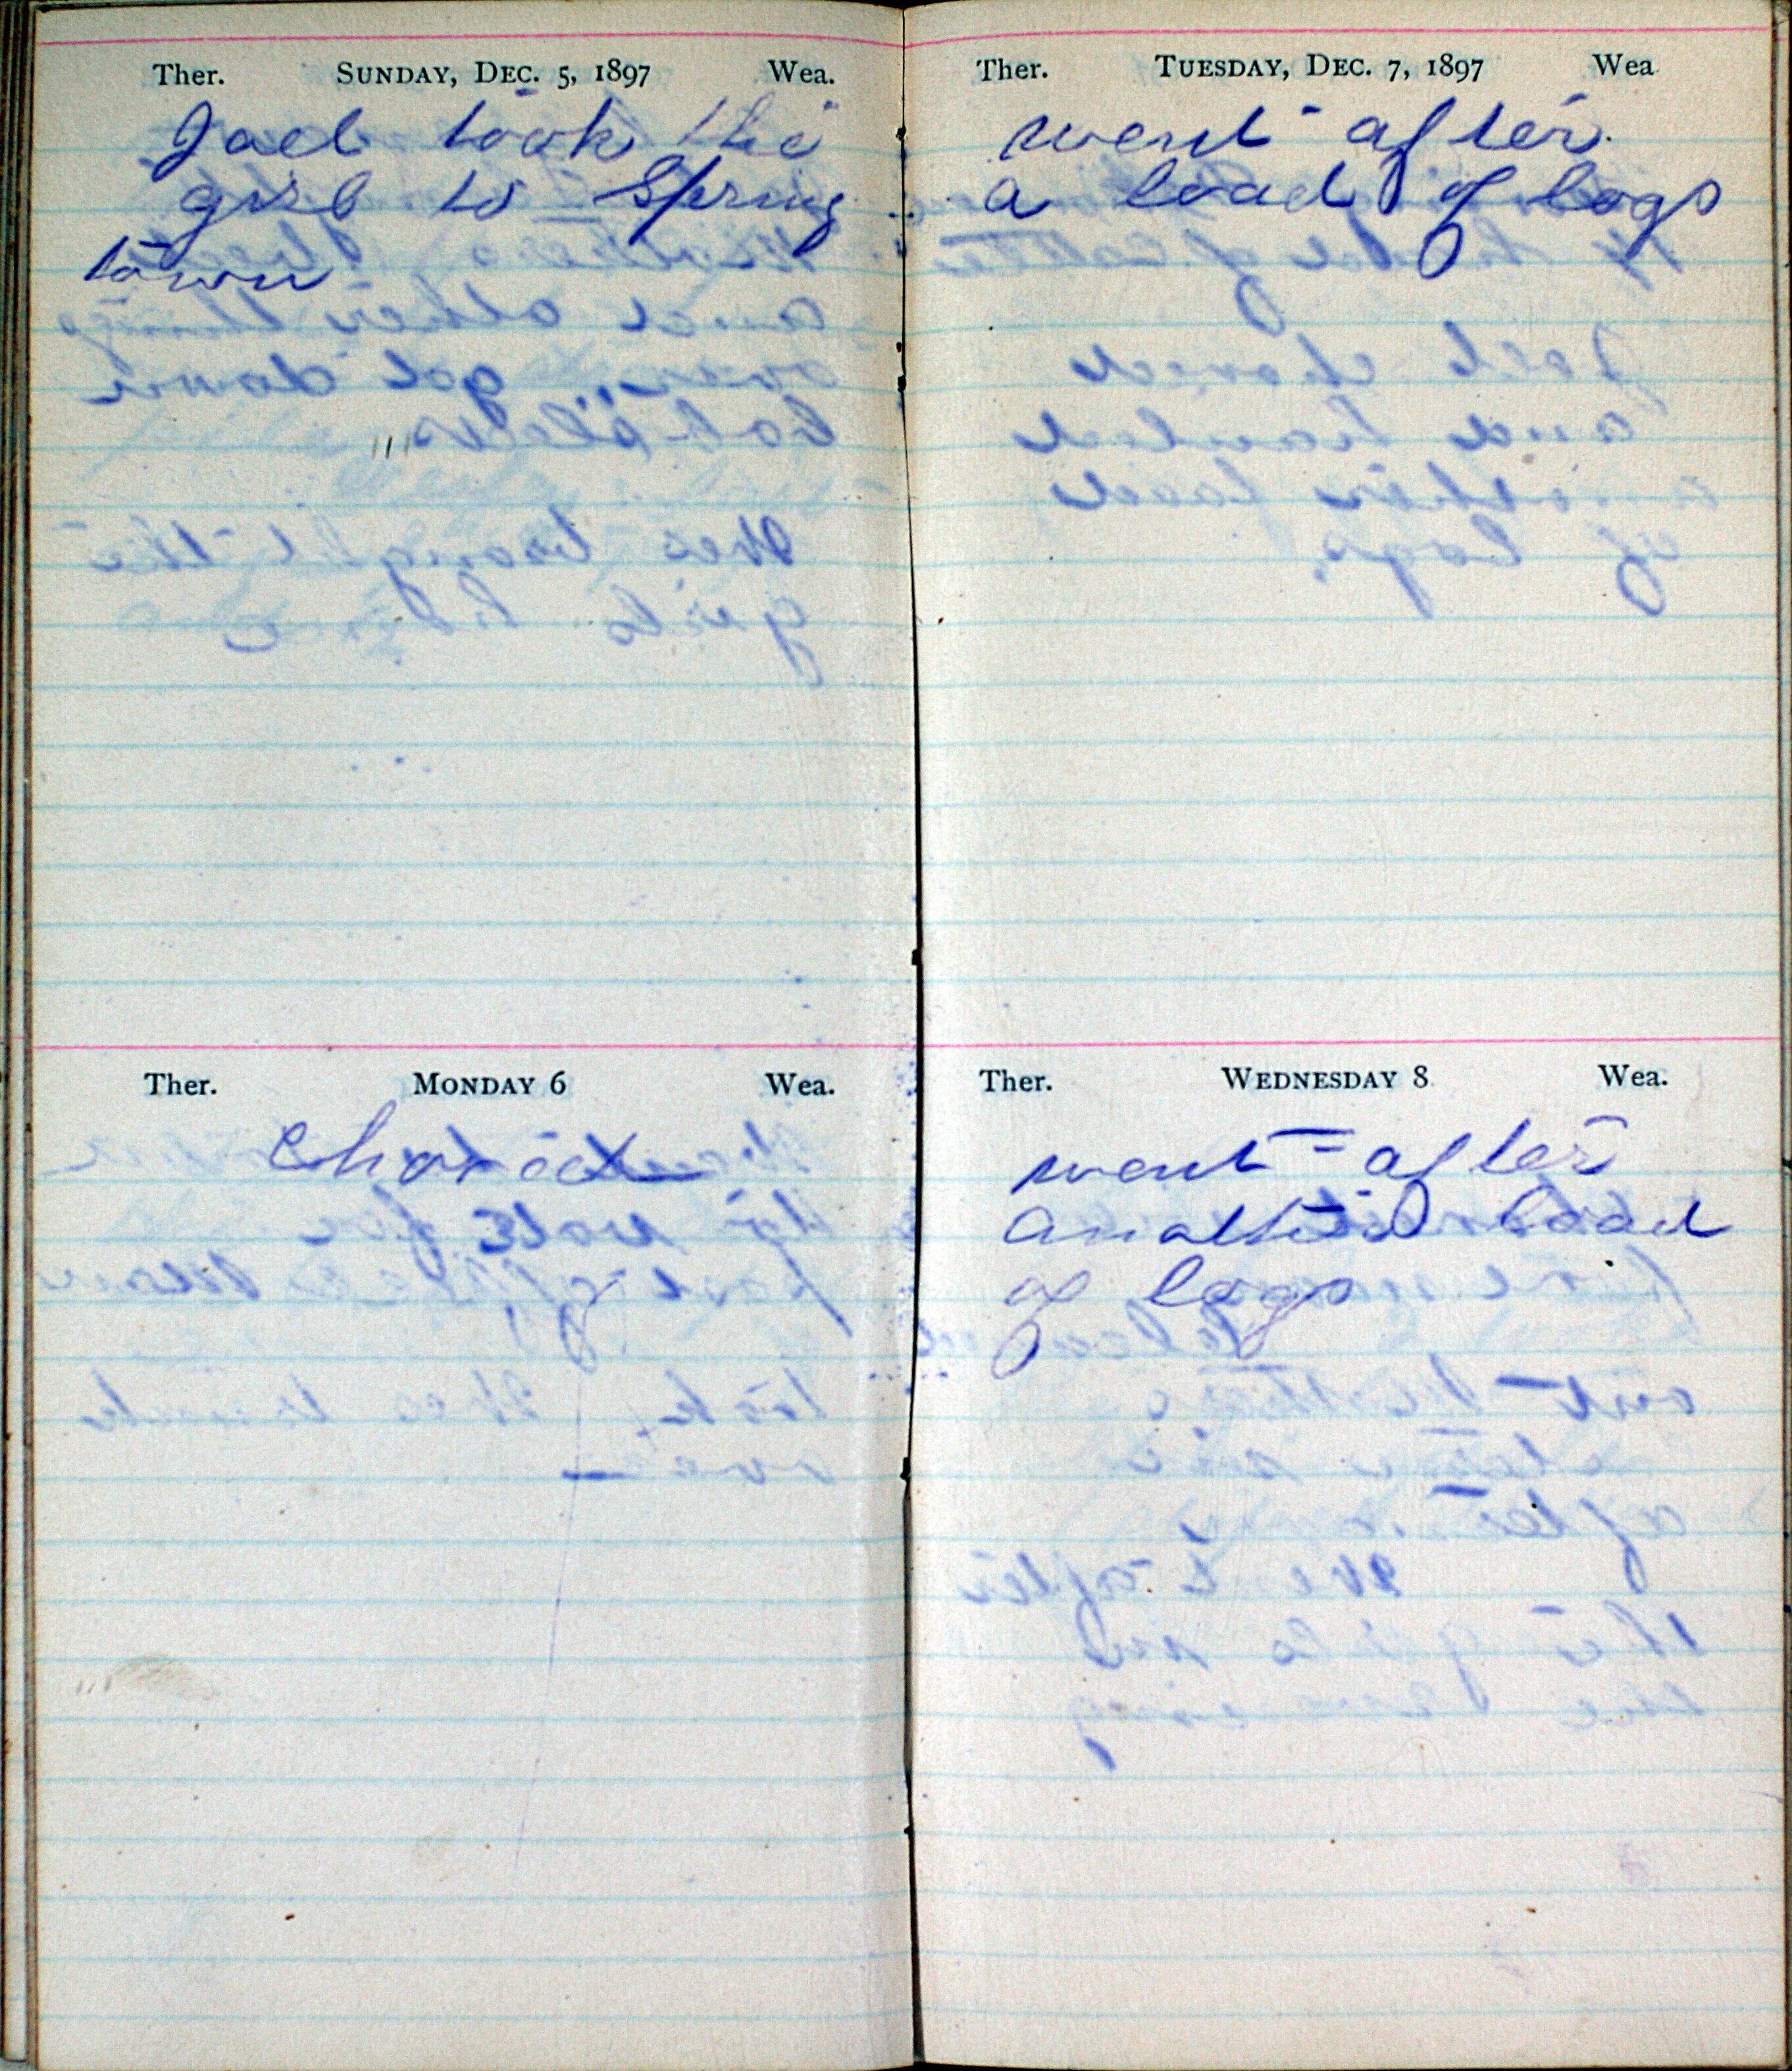 Ther. SUNDAY, DEC. 5, 1897 Wea.
Joel took the
girl to Spring
town
Ther. MONDAY 6 Wea.
chored
Ther. TUESDAY, DEC. 7, 1897 Wea
went after
a load of logs
Ther. WEDNESDAY 8 Wea.
went after
another load
of logs